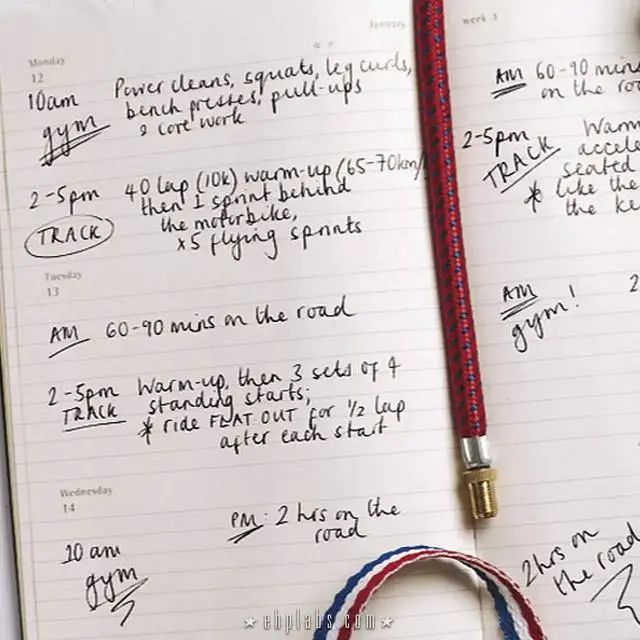 January
week 3
Monday
12
10am Power cleans, squats, leg curls,
gym bench presses, pull-ups
& core work
2-5pm 40 lap (10k) warm-up (65-70km/
TRACK then 1 sprint behind
the motorbike,
x5 flying sprints
Tuesday
13
AM 60-90 mins on the road
2-5pm Warm-up, then 3 sets of 4
TRACK standing starts;
* ride FLAT OUT for ½ lap
after each start
Wednesday
14
PM: 2 hrs on the
road
10 am
gym
AM 60-90 mins
on the
2-5pm
TRACK
seated
* like the
the
AM 2
gym!
2hrs on
the road
★ ehplabs.com ★